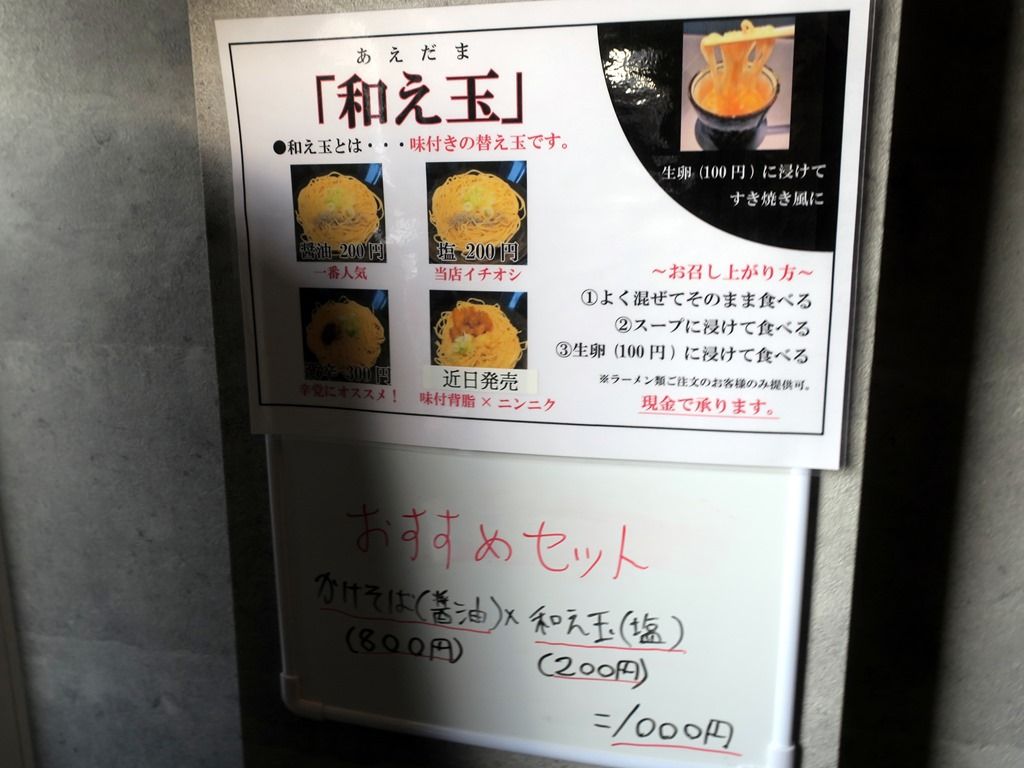 あえだま
「和え玉」
●和え玉とは・・・味付きの替え玉です。
醤油 200円
一番人気
塩 200円
当店イチオシ
300円
辛党にオススメ！
近日発売
味付背脂×ニンニク
生卵(100円)に浸けて
すき焼き風に
～お召し上がり方～
①よく混ぜてそのまま食べる
②スープに浸けて食べる
③生卵(100円)に浸けて食べる
※ラーメン類ご注文のお客様のみ提供可。
現金で承ります。
おすすめセット
かけそば(醤油)×和え玉(塩)
(800円)
(200円)
=1000円